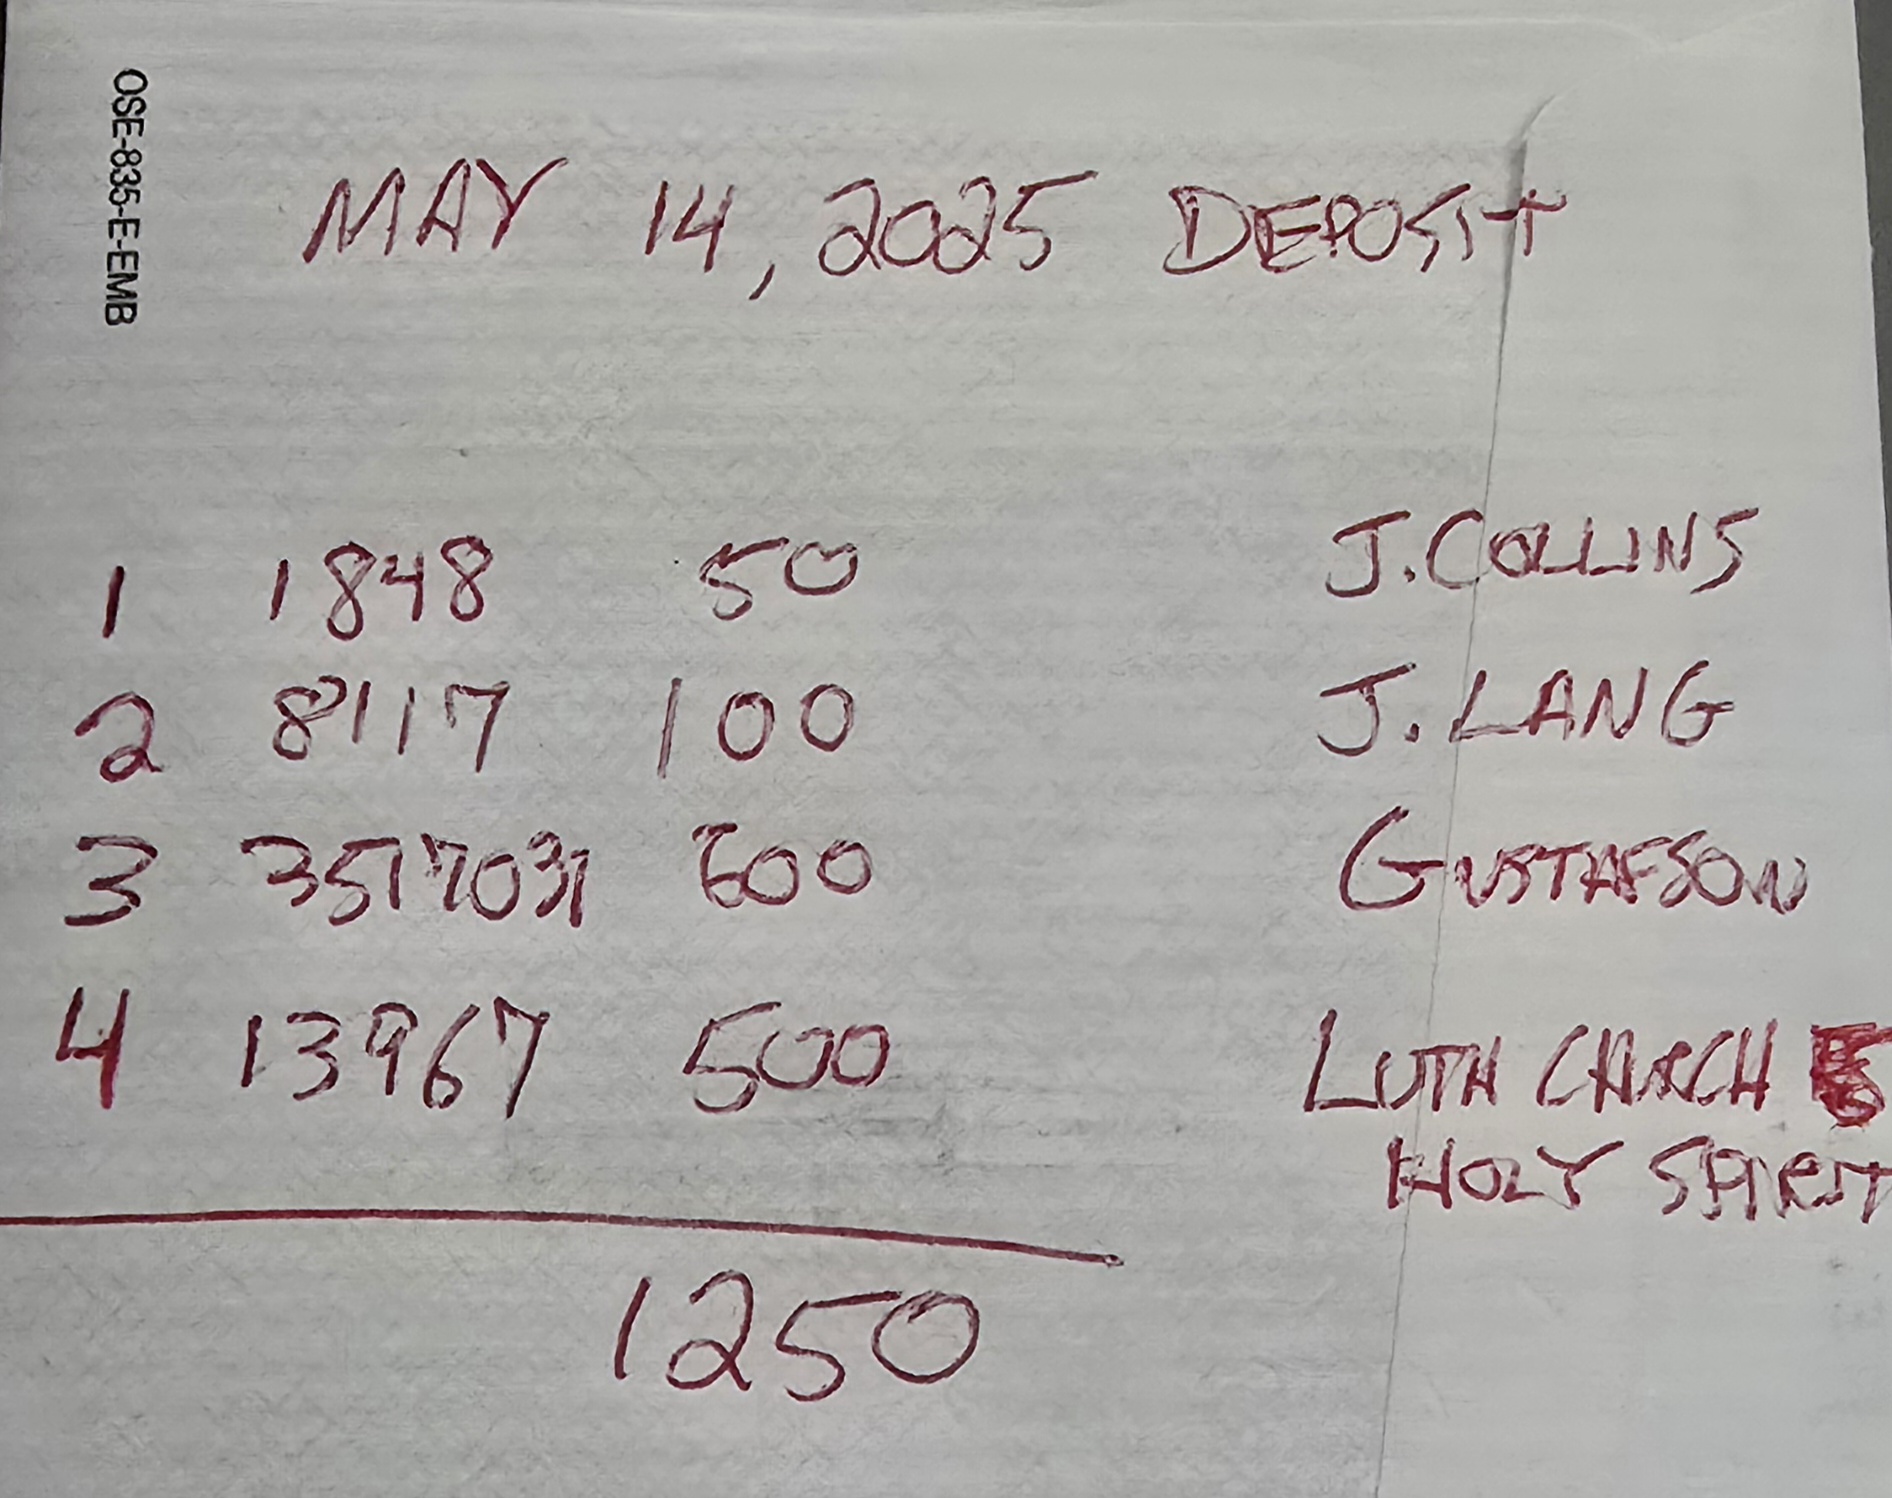 OSE-835-E-EMB
MAY 14, 2025 DEPOSIT
1 1848 50 J. COLLINS
2 8117 100 J. LANG
3 3517031 600 GUSTAFSON
4 13967 500 LUTH CHURCH
HOLY SPIRIT
1250